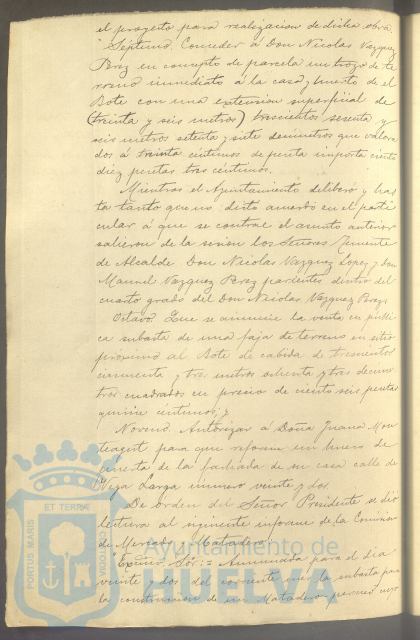 el proyecto para realizacion de dicha obra
Septimo. Conceder á Don Nicolas Vazquez
Perez en concepto de parcela un trozo de te
rreno inmediato á la casa y huerto de el
Bote con una extension superficial de
(treinta y seis metros) trescientos sesenta y
seis metros setenta y siete decimetros que valora
dos á treinta céntimos de peseta importa ciento
diez pesetas tres céntimos.
Mientras el Ayuntamiento deliberó y has
ta tanto que no dictó acuerdo en el parti
cular á que se contrae el asunto anterior
salieron de la sesion los Señores Teniente
de Alcalde Don Nicolas Vazquez Lopez y Don
Manuel Vazquez Perez parientes dentro del
cuarto grado del Don Nicolas Vazquez Perez
Octavo. Que se anuncie la venta en públi
ca subasta de una faja de terreno en sitio
próximo al Bote de cabida de trescientos
cincuenta y tres metros ochenta y tres decime
tros cuadrados en precio de ciento seis pesetas
quince céntimos; y
Noveno. Autorizar á Doña Juana
para que reforme un hueco de
puerta de la fachada de su casa calle de
Vega Larga número veinte y dos.
De orden del Señor Presidente se dió
lectura al siguiente informe de la Comision
de Mercados y Matadero:
Excmo. Sor: = Anunciada para el dia
veinte y dos del corriente mes la subasta para
la construccion de un Matadero
PORTUS MARIS ET TERRAE CUSTODIA
Ayuntamiento de
HUELVA